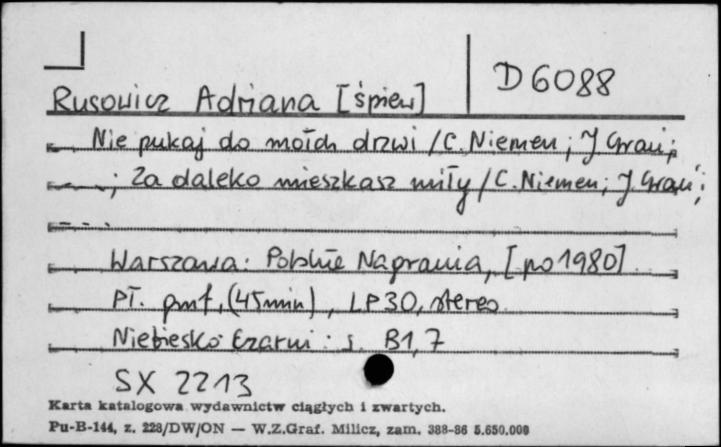 D 6088
Rusowicz Adriana [śpiew]
Nie pukaj do moich drzwi / C. Niemen ; J Grań ;
; Za daleko mieszkasz miły / C. Niemen ; J. Grań ;
Warszawa : Polskie Nagrania, [po 1980]
Pł. gmf, (45 min), LP 30, stereo
Niebiesko Czarni : s. B1, 7
SX 2213
Karta katalogowa wydawnictw ciągłych i zwartych.
Pu-B-144, z. 228/DW/ON — W.Z.Graf. Milicz, zam. 388-86 5.650.000